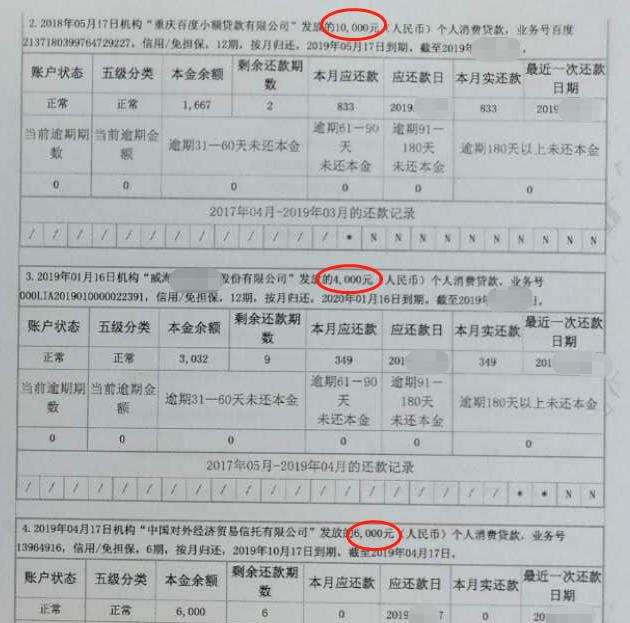 2.2018年05月17日机构“重庆百度小额贷款有限公司”发放的10,000元(人民币)个人消费贷款,业务号百度
2137180399764729227,信用/免担保,12期,按月归还,2019年05月17日到期。截至2019年
账户状态 五级分类 本金余额 剩余还款期数 本月应还款 应还款日 本月实还款 最近一次还款日期
正常 正常 1,667 2 833 2019. 833 2019
当前逾期期数 当前逾期金额 逾期31—60天未还本金 逾期61—90天未还本金 逾期91—180天未还本金 逾期180天以上未还本金
0 0 0 0 0 0
2017年04月-2019年03月的还款记录
/ / / / / / / / / / / / / * N N N N N N N N
3.2019年01月16日机构“威海 股份有限公司”发放的4,000元(人民币)个人消费贷款,业务号
000LIA2019010000022391,信用/免担保,12期,按月归还,2020年01月16日到期。截至2019年
账户状态 五级分类 本金余额 剩余还款期数 本月应还款 应还款日 本月实还款 最近一次还款日期
正常 正常 3,032 9 349 201 349 201
当前逾期期数 当前逾期金额 逾期31—60天未还本金 逾期61—90天未还本金 逾期91—180天未还本金 逾期180天以上未还本金
0 0 0 0 0 0
2017年05月-2019年04月的还款记录
/ / / / / / / / / / / / / / / / / / / / * * N N
4.2019年04月17日机构“中国对外经济贸易信托有限公司”发放的6,000元(人民币)个人消费贷款,业务号
13964916,信用/免担保,6期,按月归还,2019年10月17日到期。截至2019年04月17日,
账户状态 五级分类 本金余额 剩余还款期数 本月应还款 应还款日 本月实还款 最近一次还款日期
正常 正常 6,000 6 0 2019 7 0 20